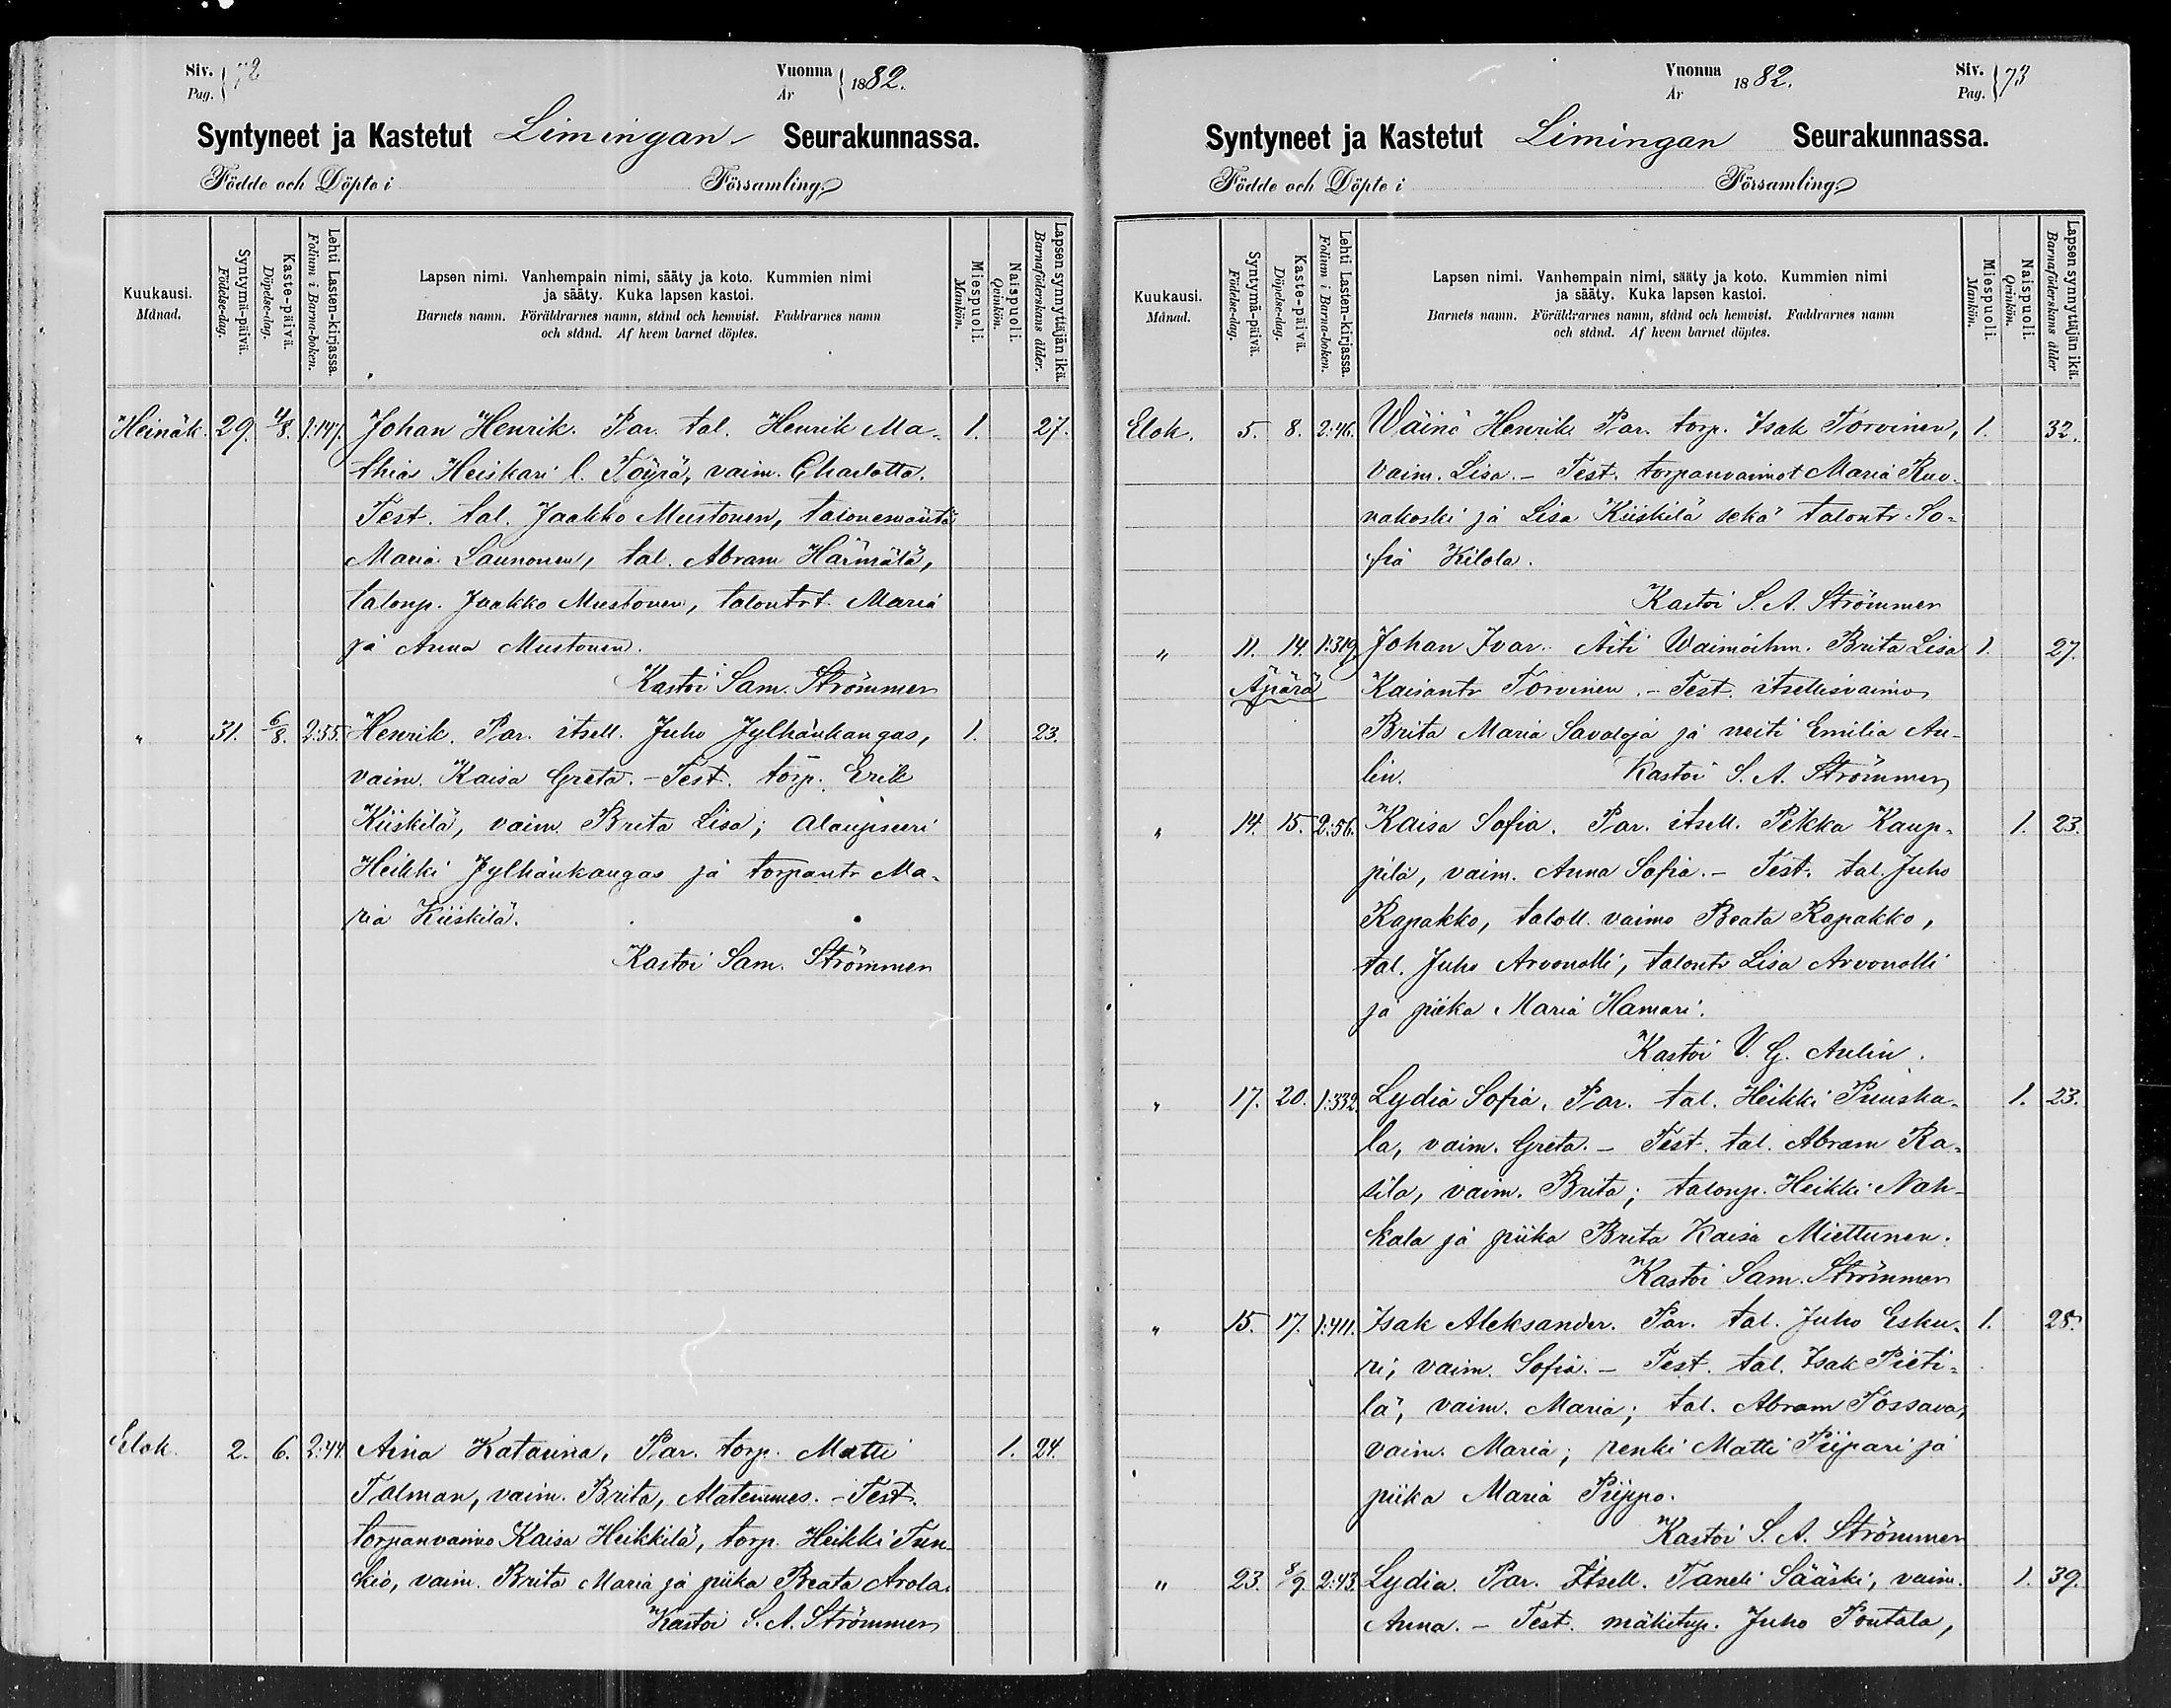 Siv. Pag. 72
Vuonna År 1882.
Syntyneet ja Kastetut Limingan Seurakunnassa.
Födde och Döpte i Församling.
Kuukausi. Månad.
Syntymä-päivä. Födelse-dag.
Kaste-päivä. Döpelse-dag.
Lehti Lasten-kirjassa. Folium i Barna-boken.
Lapsen nimi. Vanhempain nimi, sääty ja koto. Kummien nimi
ja sääty. Kuka lapsen kastoi.
Barnets namn. Föräldrarnes namn, stånd och hemvist. Faddrarnes namn
och stånd. Af hvem barnet döptes.
Miespuoli. Mankön.
Naispuoli. Qvinkön.
Lapsen synnyttäjän ikä. Barnaföderskans ålder.
Heinäk. 29. 4/8. 1:147. Johan Henrik. Par. tal. Henrik Ma- 1. 27.
thias Heiskari l. Töyrä, vaim. Charlotta.
Test. tal. Jaakko Mustonen, talonemäntä
Maria Launonen, tal. Abram Härmälä,
talonp. Jaakko Mustonen, talontrt. Maria
ja Anna Mustonen.
Kastoi Sam. Strömmer
" 31. 6/8. 2:55. Henrik. Par. itsell. Juho Jylhänkangas, 1. 23.
vaim. Kaisa Greta. - Test. torp. Erik
Kiiskilä, vaim. Brita Lisa; alaupseeri
Heikki Jylhänkangas ja torpantr Ma-
ria Kiiskilä.
Kastoi Sam. Strömmer
Elok. 2. 6. 2:44. Aina Katarina, Par. torp. Matti 1. 24.
Talman, vaim. Brita, Alatemmes. - Test.
torpanvaimo Kaisa Heikkilä, torp. Heikki Tun-
kio, vaim. Brita Maria ja piika Beata Arola.
Kastoi S. A. Strömmer
Vuonna År 1882.
Siv. Pag. 73
Syntyneet ja Kastetut Limingan Seurakunnassa.
Födde och Döpte i Församling.
Kuukausi. Månad.
Syntymä-päivä. Födelse-dag.
Kaste-päivä. Döpelse-dag.
Lehti Lasten-kirjassa. Folium i Barna-boken.
Lapsen nimi. Vanhempain nimi, sääty ja koto. Kummien nimi
ja sääty. Kuka lapsen kastoi.
Barnets namn. Föräldrarnes namn, stånd och hemvist. Faddrarnes namn
och stånd. Af hvem barnet döptes.
Miespuoli. Mankön.
Naispuoli. Qvinkön.
Lapsen synnyttäjän ikä. Barnaföderskans ålder
Elok. 5. 8. 2:46. Wäinö Henrik. Par. torp. Isak Torvinen, 1. 32.
vaim. Lisa. - Test. torpanvaimot Maria Ruo-
nakoski ja Lisa Kiiskilä sekä talontr. So-
fia Kilola.
Kastoi S. A. Strömmer
" 11. 14. 1:319. Johan Ivar. Äiti Vaimoihm. Brita Lisa 1. 27.
Äpärä Kaisantr Torvinen. - Test. itsellisvaimo
Brita Maria Savaloja ja neiti Emilia Au-
lin. Kastoi S. A. Strömmer
" 14. 15. 2:56. Kaisa Sofia. Par. itsell. Pekka Kaup- 1. 23.
pila, vaim. Anna Sofia. - Test. tal. Juho
Rapakko, taloll. vaimo Beata Rapakko,
tal. Juho Arvonolli, talontr Lisa Arvonolli
ja piika Maria Hamari.
Kastoi V. G. Aulin.
" 17. 20. 1:332. Lydia Sofia. Par. tal. Heikki Puuska- 1. 23.
la, vaim. Greta. - Test. tal. Abram Ra-
sila, vaim. Brita; talonp. Heikki Nah-
kala ja piika Brita Kaisa Miettunen.
Kastoi Sam. Strömmer
" 15. 17. 1:411. Isak Aleksander. Par. tal. Juho Esku- 1. 28.
ri, vaim. Sofia. - Test. tal. Isak Pieti-
lä, vaim. Maria; tal. Abram Tossava,
vaim. Maria; renki Matti Piipari ja
piika Maria Piippo.
Kastoi S. A. Strömmer
" 23. 8/9 2:43. Lydia. Par. Itsell. Taneli Sääski, vaim. 1. 39.
Anna. - Test. mäkitup. Juho Poutala,